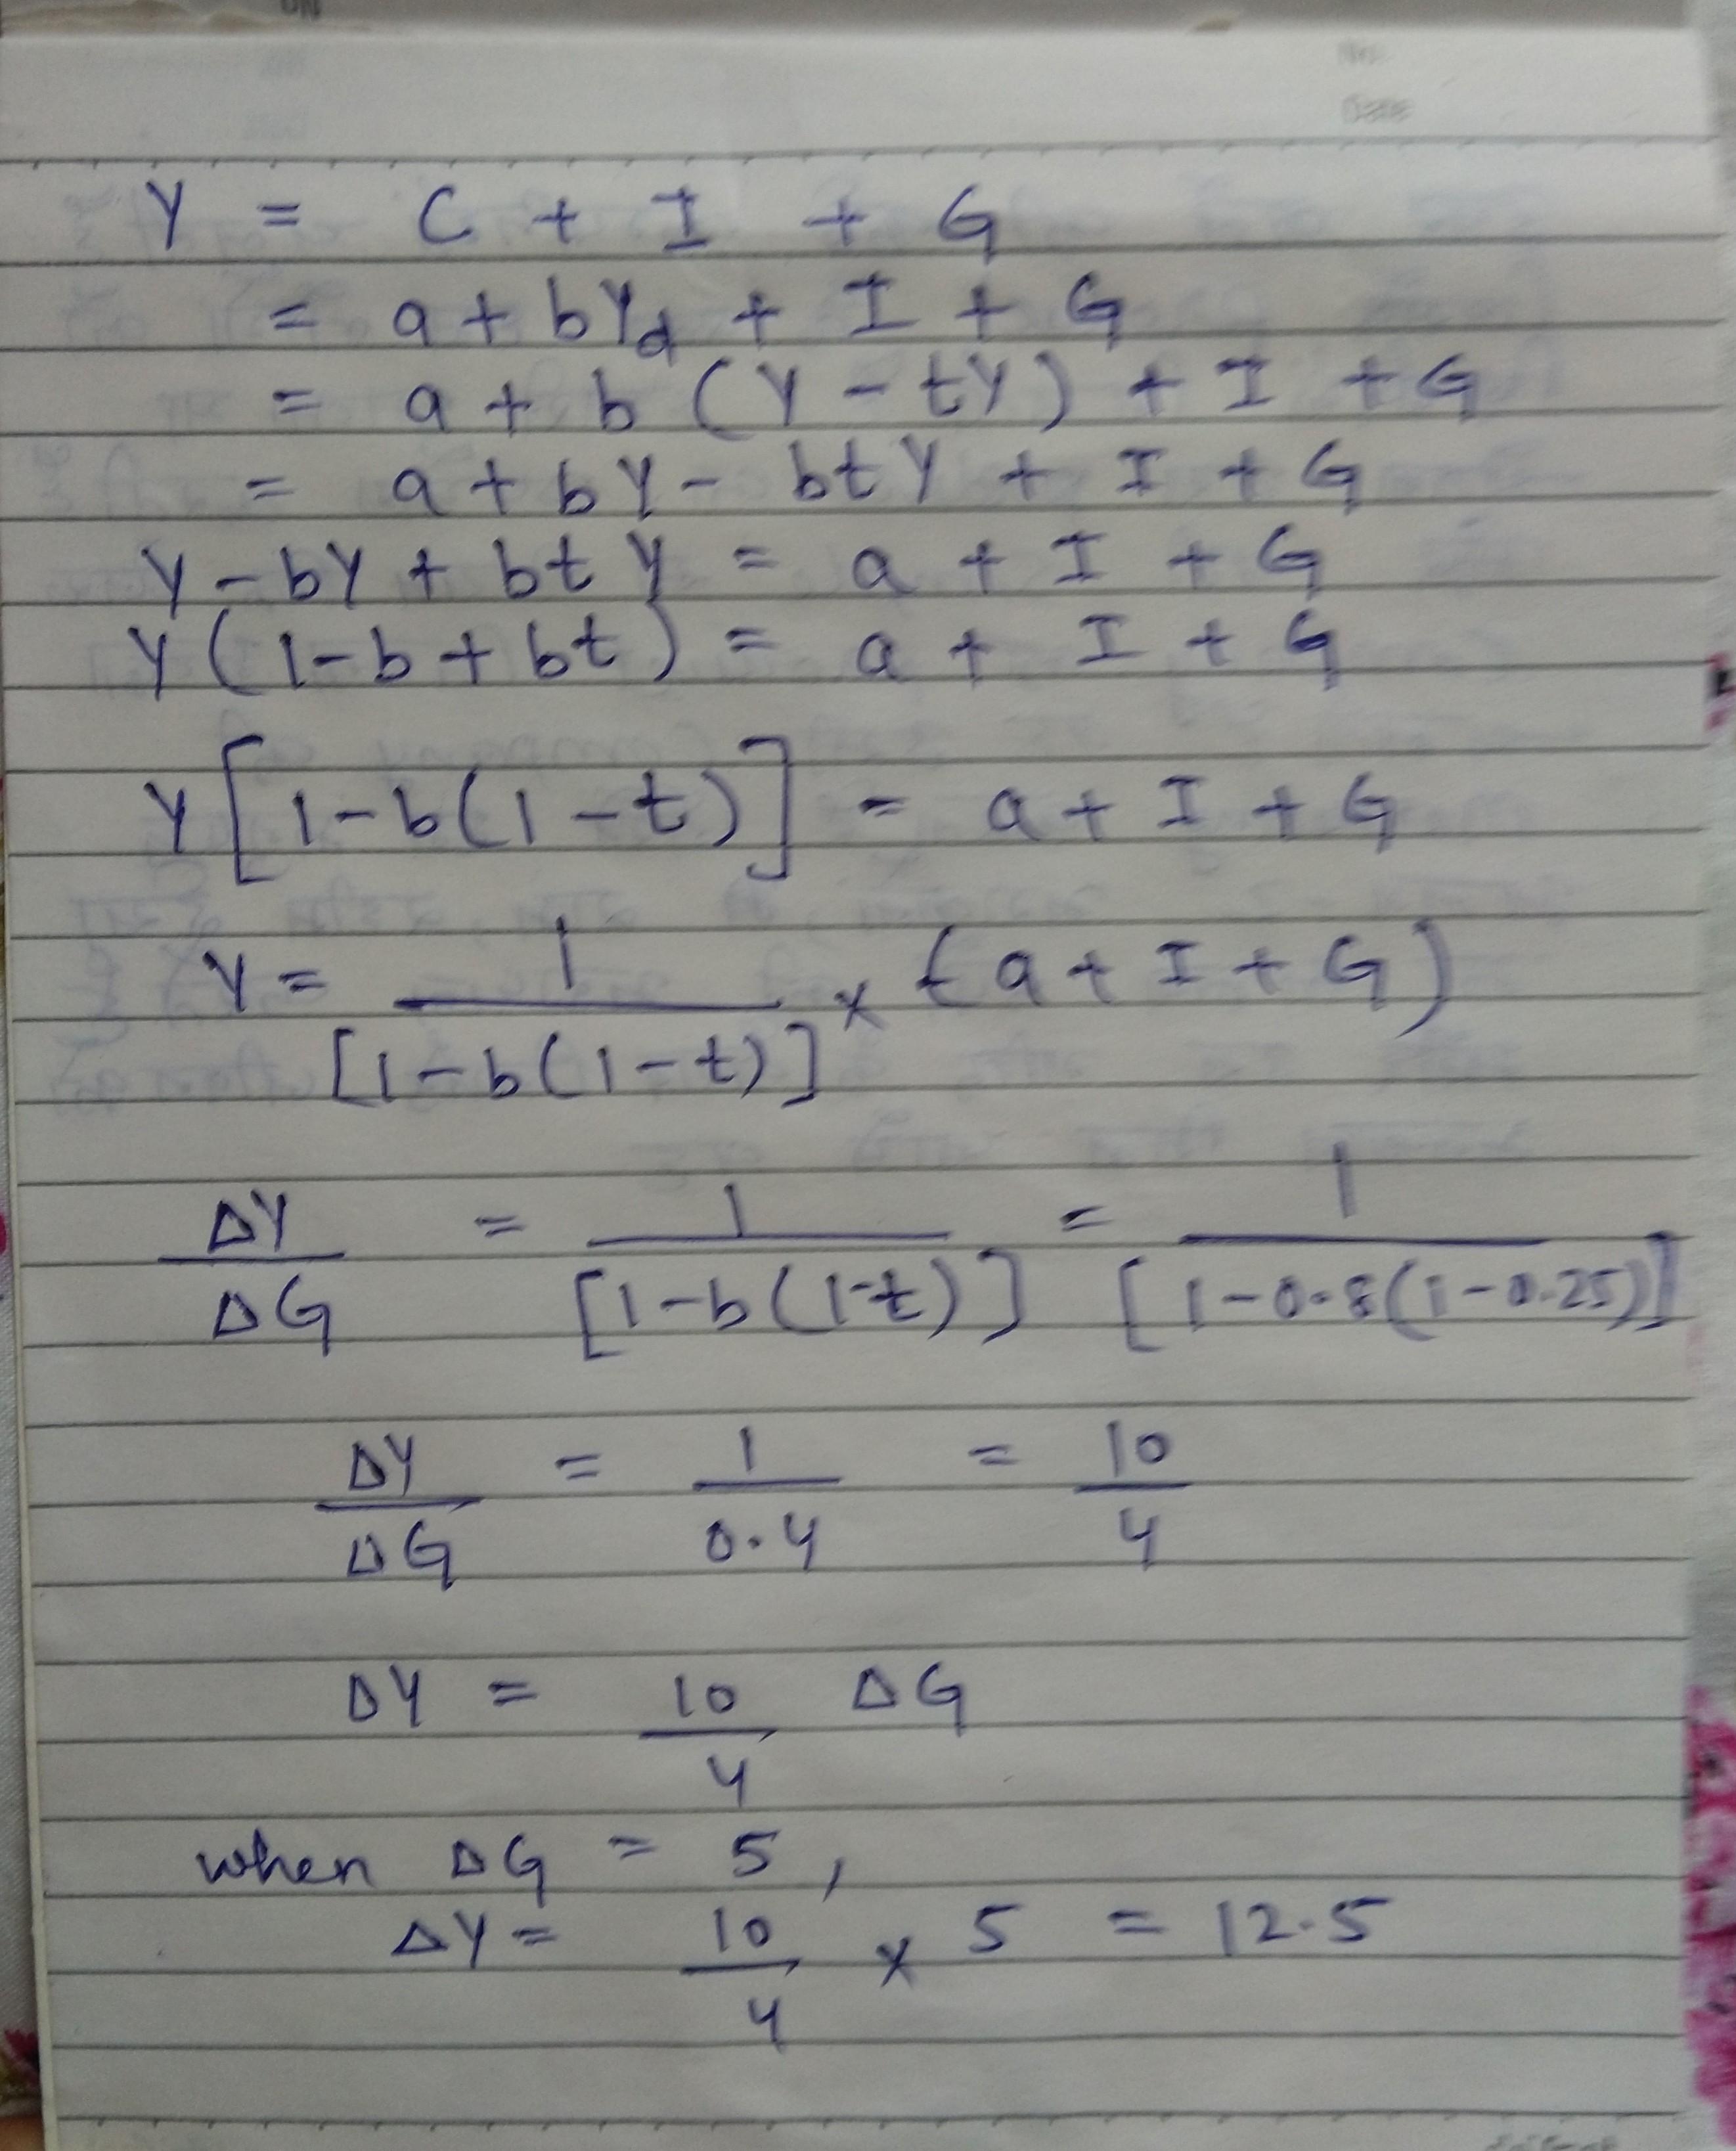 No.
Date
Y = C + I + G
= a + bYd + I + G
= a + b (Y - tY) + I + G
= a + bY - btY + I + G
Y - bY + btY = a + I + G
Y (1-b + bt) = a + I + G
Y [1-b(1-t)] = a + I + G
Y = 1 / [1-b(1-t)] x (a + I + G)
ΔY / ΔG = 1 / [1-b(1-t)] = 1 / [1-0.8(1-0.25)]
ΔY / ΔG = 1 / 0.4 = 10 / 4
ΔY = 10 / 4 ΔG
when ΔG = 5,
ΔY = 10 / 4 x 5 = 12.5